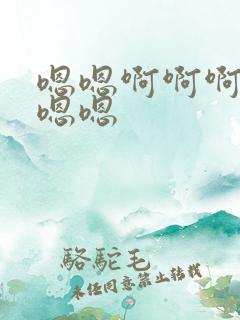 嗯嗯啊啊啊
嗯嗯
駱駝毛
未任同意禁止转载